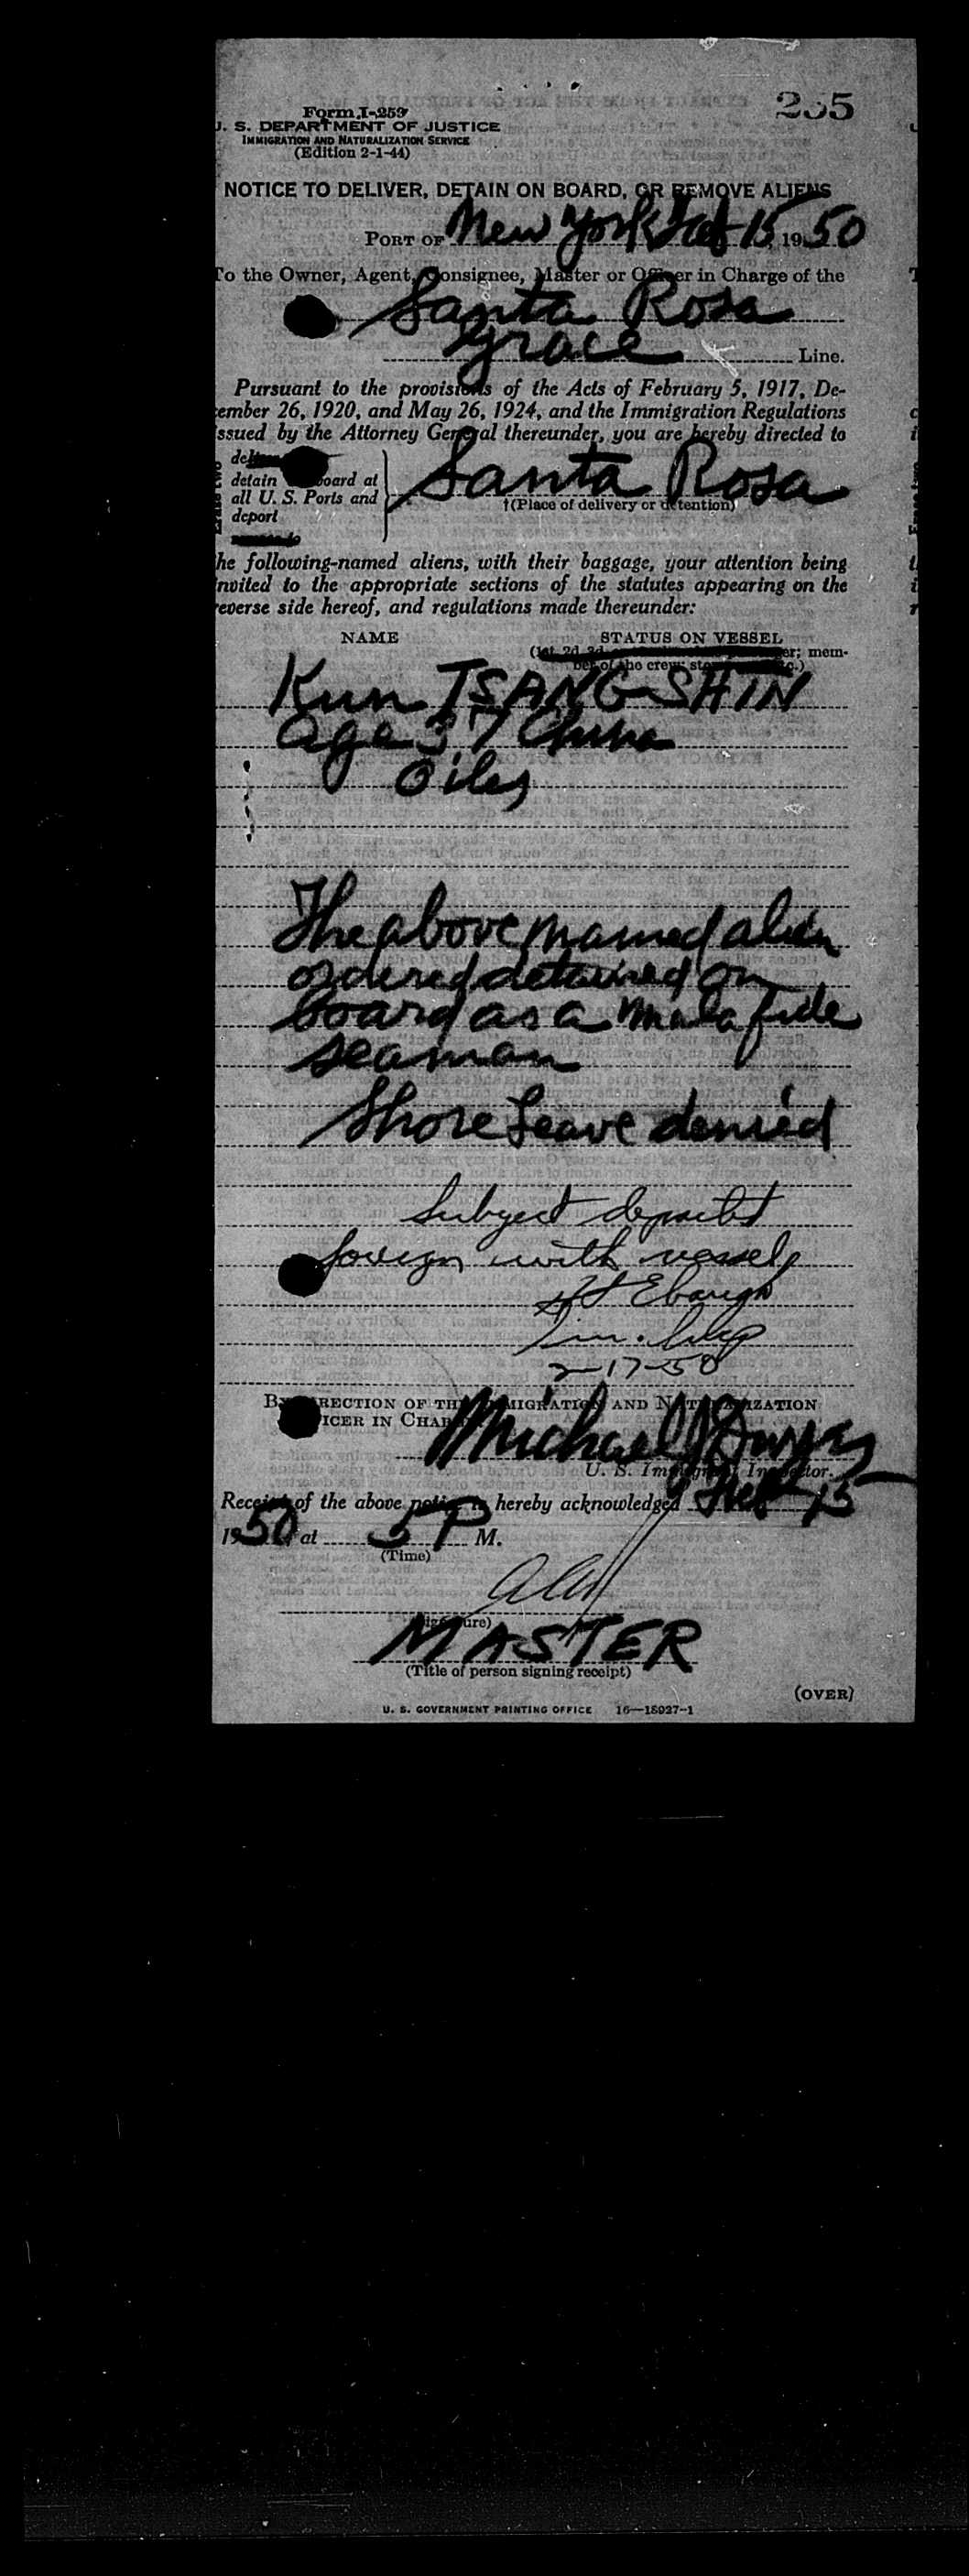 255
Form I-259
U. S. DEPARTMENT OF JUSTICE
IMMIGRATION AND NATURALIZATION SERVICE
(Edition 2-1-44)
NOTICE TO DELIVER, DETAIN ON BOARD, OR REMOVE ALIENS
PORT OF New York Feb 15, 1950
To the Owner, Agent, Consignee, Master or Officer in Charge of the
Santa Rosa
Grace Line.
Pursuant to the provisions of the Acts of February 5, 1917, De-
cember 26, 1920, and May 26, 1924, and the Immigration Regulations
issued by the Attorney General thereunder, you are hereby directed to
detain board at
all U. S. Ports and
deport
Santa Rosa
†(Place of delivery or detention)
the following-named aliens, with their baggage, your attention being
invited to the appropriate sections of the statutes appearing on the
reverse side hereof, and regulations made thereunder:
NAME STATUS ON VESSEL
(1st, 2d, 3d mem-
ber of the crew;
Kun TSANG SHIN
age 37 China
Oiler
The above named alien
ordered detained on
board as a mala fide
seaman
Shore Leave denied
Subject departed
foreign with vessel
Ebaugh
Im. Insp
2-17-50
BY DIRECTION OF THE IMMIGRATION AND NATURALIZATION
OFFICER IN CHARGE
Michael J Dwyer
U. S. Immigrant Inspector.
Receipt of the above notice is hereby acknowledged Feb 15
1950 at 5 P M.
(Time)
(Signature)
MASTER
(Title of person signing receipt)
(OVER)
U. S. GOVERNMENT PRINTING OFFICE 16—18927-1